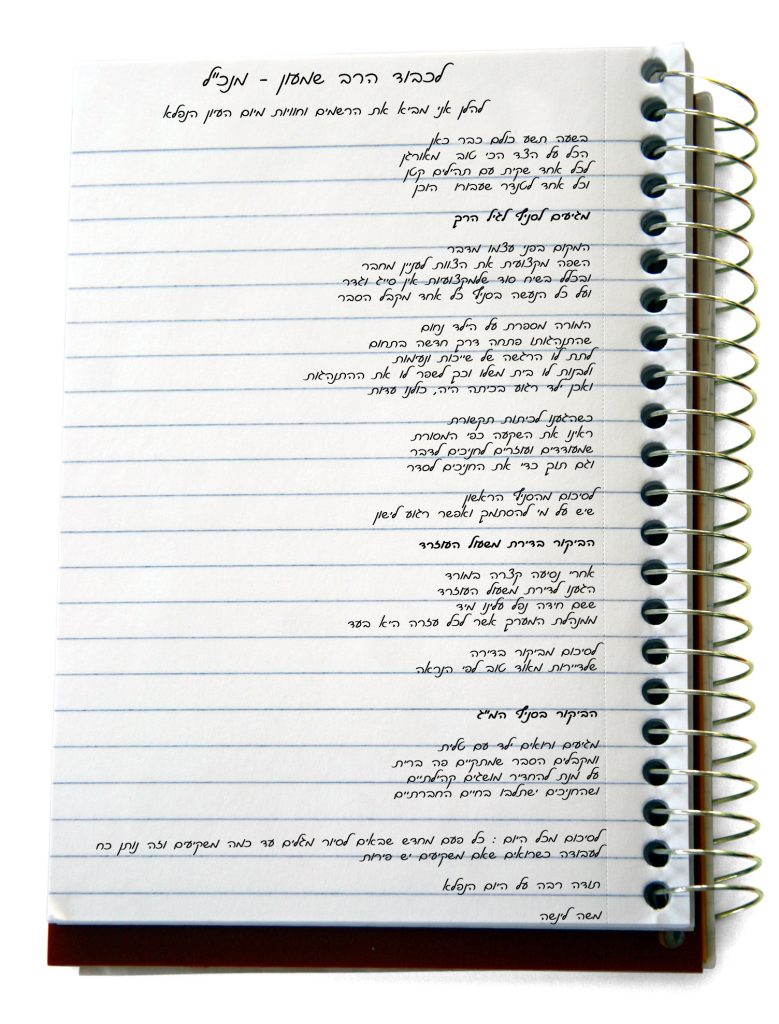 לכבוד הרב שמעון - מנכ"ל
להלן אני מביא את הרשמים וחוויות מיום העיון הנפלא
בשעה תשע כולם כבר כאן
הכל על הצד הכי טוב מאורגן
לכל אחד שקית עם תהילים קטן
וכל אחד לטנדר שעבורו הוכן
מגיעים לסניף לגיל הרך
המקום בפני עצמו מדבר
השפה מקצועית את הצוות לעניין מחבר
ובכלל בשיח סוד שלמקצועיות אין סייג וגדר
ועל כל הנעשה בסניף כל אחד מקבל הסבר
המורה מספרת על הילד נחום
שהתנהגותו פתחה דרך חדשה בתחום
לתת לו הרגשה של שייכות ונעימות
ולבנות לו בית משלו וכך לשפר לו את ההתנהגות
ואכן ילד רגוע בכיתה היה, כולנו עדות
כשהגענו לכיתות תקשורת
ראינו את השקעה כפי המסורת
שמעודדים ועוזרים לחניכים לדבר
וגם תוך כדי את החניכים לסדר
לסיכום מהסניף הראשון
שיש על מי להסתמך ואפשר רגוע לישון
הביקור בדירת משעול העוזרד
אחרי נסיעה קצרה במורד
הגענו לדירת משעול העוזרד
ששם חידה נפל עלינו מיד
ממנהלת המערך אשר לכל עזרה היא בעד
לסיכום מביקור בדירה
שלדיירות מאוד טוב לפי הנראה
הביקור בסניף המ"ג
מגיעים ורואים ילד עם טלית
ומקבלים הסבר שמתקיים פה ברית
על מנת להחדיר מושגים קהילתיים
ושהחניכים ישתלבו בחיים החברתיים
לסיכום מכל היום : כל פעם מחדש שבאים לסיור מגלים עד כמה משקיעים וזה נותן כח
לעבודה כשרואים שאם משקיעים יש פירות
תודה רבה על היום הנפלא
משה לינשה